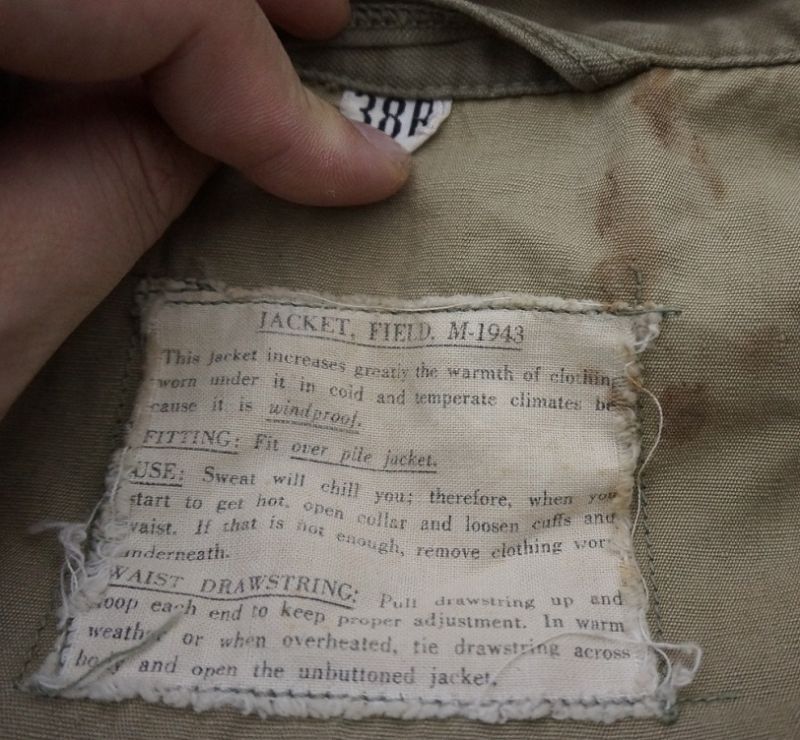 38R
JACKET, FIELD, M-1943
This jacket increases greatly the warmth of clothing
worn under it in cold and temperate climates be
cause it is windproof.
FITTING: Fit over pile jacket.
USE: Sweat will chill you; therefore, when you
start to get hot, open collar and loosen cuffs and
waist. If that is not enough, remove clothing wor
underneath.
WAIST DRAWSTRING: Pull drawstring up and
loop each end to keep proper adjustment. In warm
weather or when overheated, tie drawstring across
body and open the unbuttoned jacket.